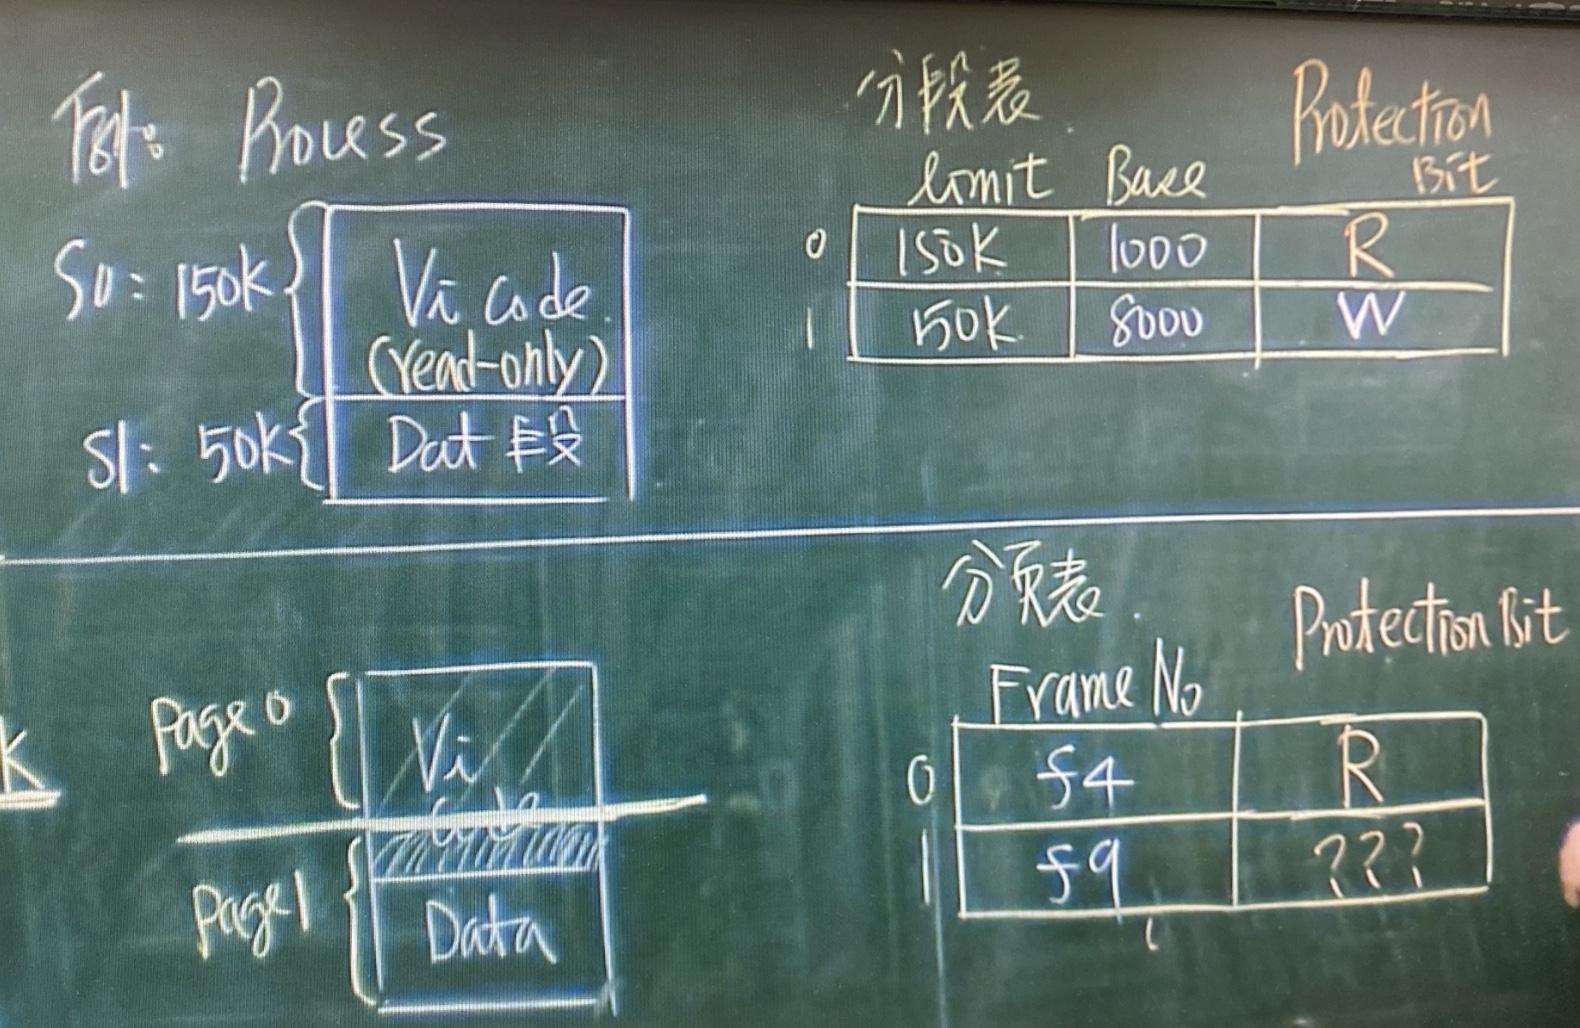 Process
S0: 150K
Vi code.
(read-only)
S1: 50K
Dat 段
分段表
limit Base Protection Bit
0 150K 1000 R
1 50K 8000 W
K
Page 0
Vi
code
Page 1
Data
分页表
Frame No Protection Bit
0 f4 R
1 f9 ???